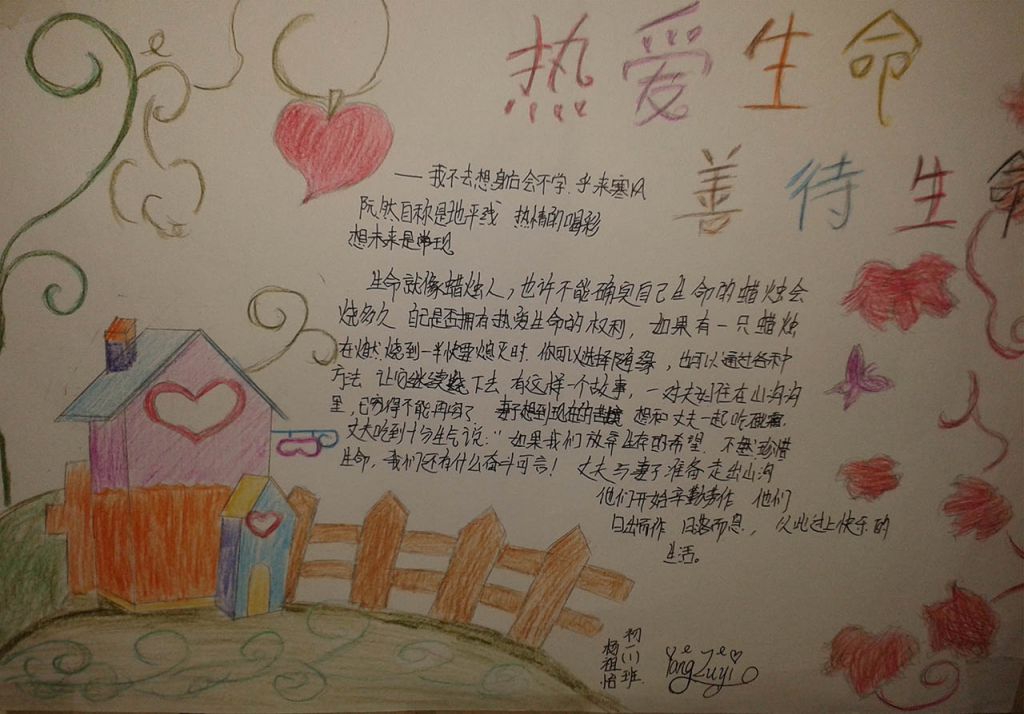 热爱生命
善待生命
——我不去想身后会不会 寒风
既然目标是地平线 热情的喝彩
想未来是
生命就像蜡烛人，也许不能确定自己生命的蜡烛会
烧多久 自己是否拥有热爱生命的权利，如果有一只蜡烛
在燃烧到一半快要熄灭时，你可以选择随缘，也可以通过各种
方法 让它继续烧下去 有这样一个故事，一对夫妇住在山沟沟
里，已穷得不能再穷了 妻子想到现在的 想和丈夫一起吃
丈夫吃到十分生气说："如果我们放弃生存的希望，不懂珍惜
生命，我们还有什么奋斗可言！ 丈夫与妻子准备走出山沟
他们开始辛勤劳作 他们
日出而作 日落而息，从此过上快乐的
生活。
初一（1）班
杨祖怡
Yang Zu yi